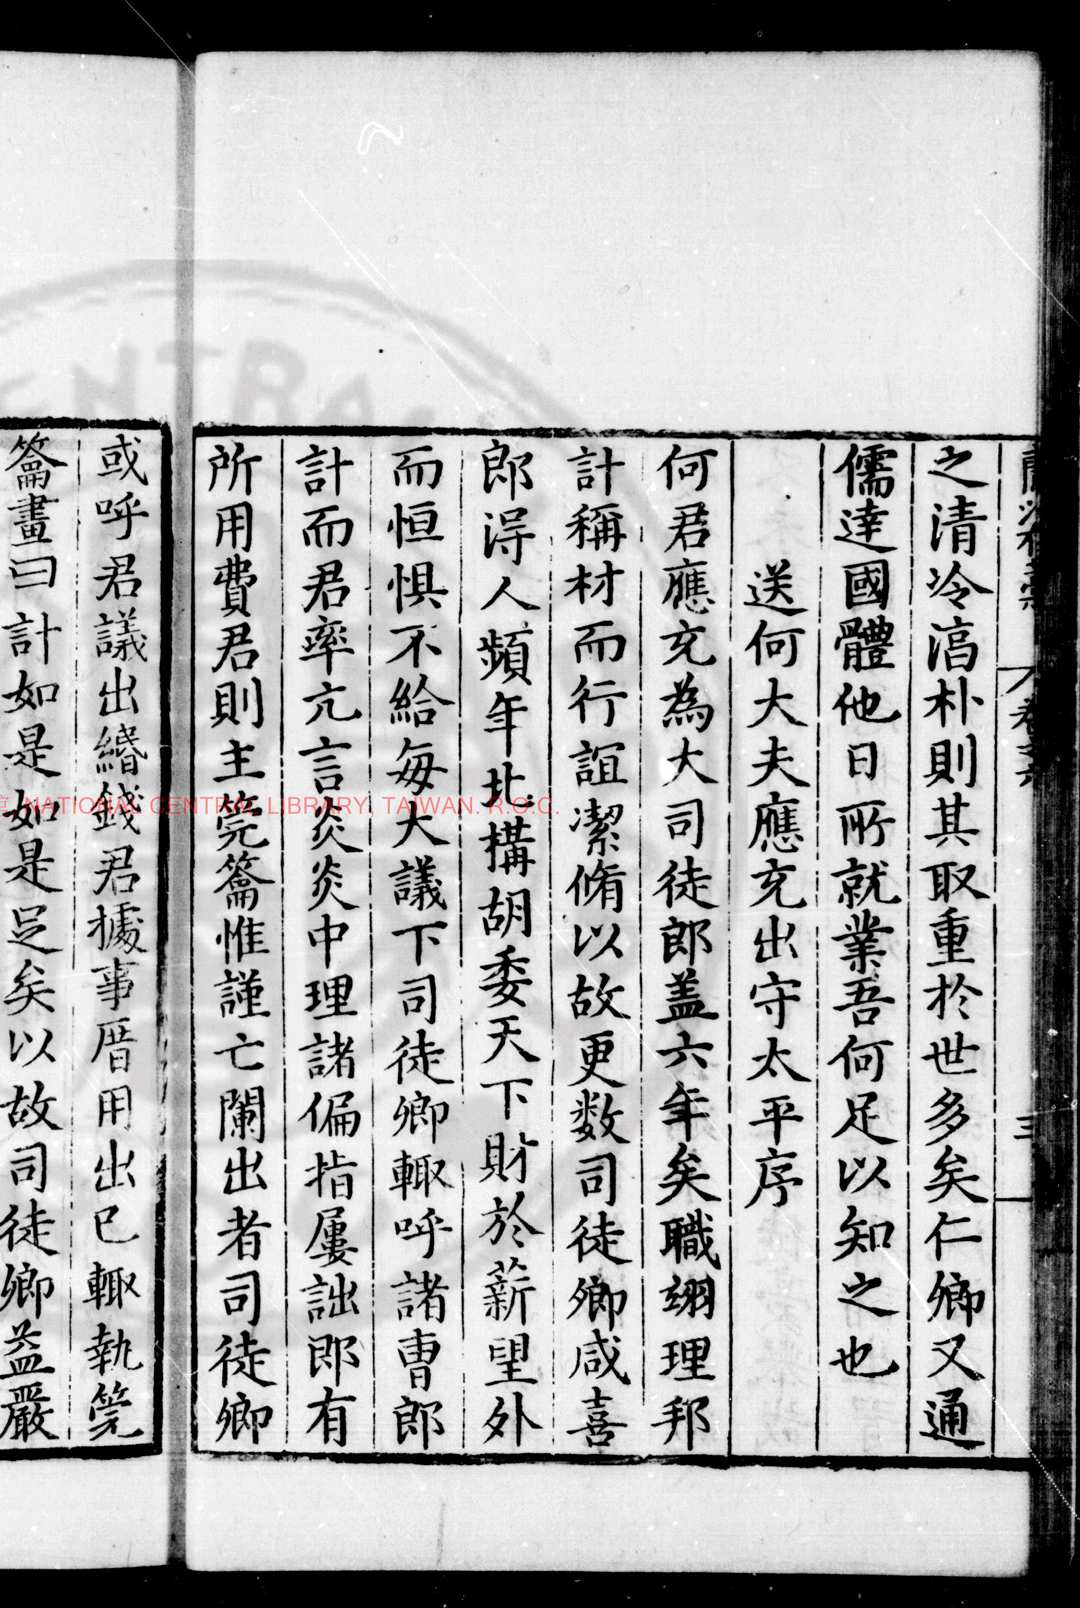 之清冷滈朴則其取重於世多矣仁卿又通
儒達國體他日所就業吾何足以知之也
送何大夫應充出守太平序
何君應充為大司徒郎盖六年矣職翊理邦
計稱材而行誼潔脩以故更数司徒卿咸喜
郎淂人頻年北搆胡委天下財於薪望外
而恒惧不給每大議下司徒卿輙呼諸曹郎
計而君率亢言炎炎中理諸偏指屢詘郎有
所用費君則主筦籥惟謹亡闌出者司徒卿
或呼君議出緡錢君據事厝用出已輙執筦
籥畫曰計如是如是足矣以故司徒卿益嚴
NATIONAL CENTRAL LIBRARY, TAIWAN. R.O.C.